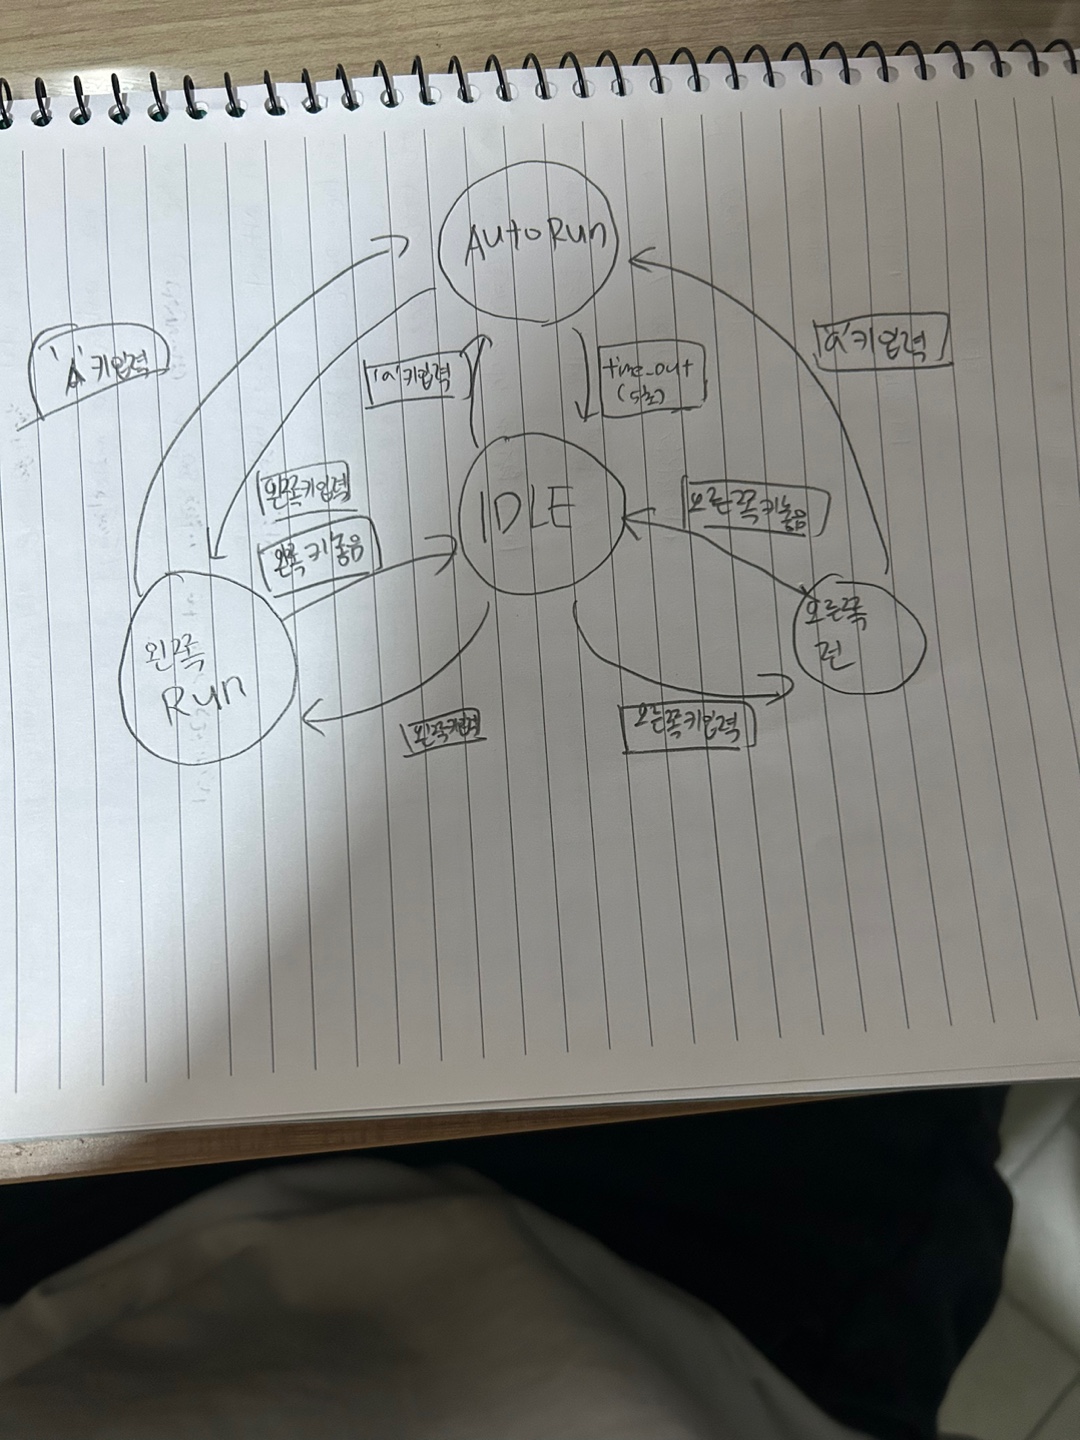 AutoRun
'A' 키입력
'a' 키입력
time_out
(5초)
'a' 키입력
왼쪽키입력
왼쪽 키놓음
IDLE
오른쪽 키놓음
왼쪽
Run
오른쪽
런
왼쪽키입력
오른쪽키입력